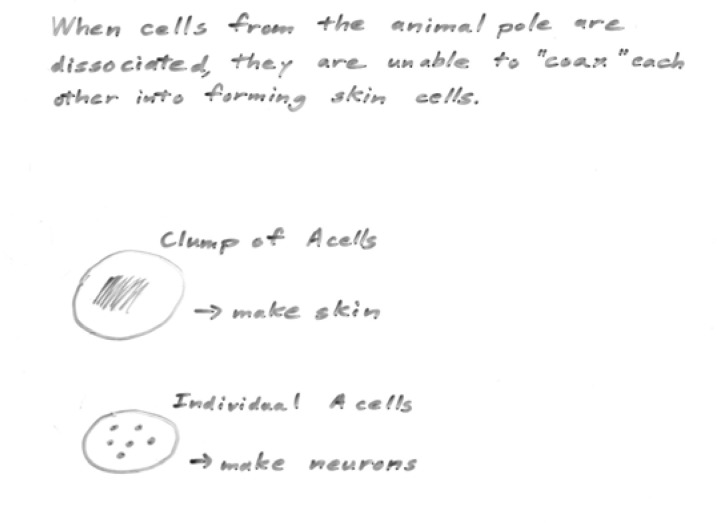 When cells from the animal pole are
dissociated, they are unable to "coax" each
other into forming skin cells.
Clump of A cells
→ make skin
Individual A cells
→ make neurons